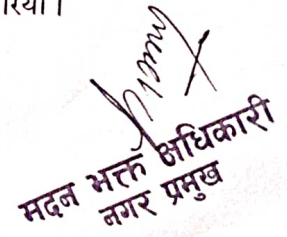 रिया।
मदन भक्त अधिकारी
नगर प्रमुख